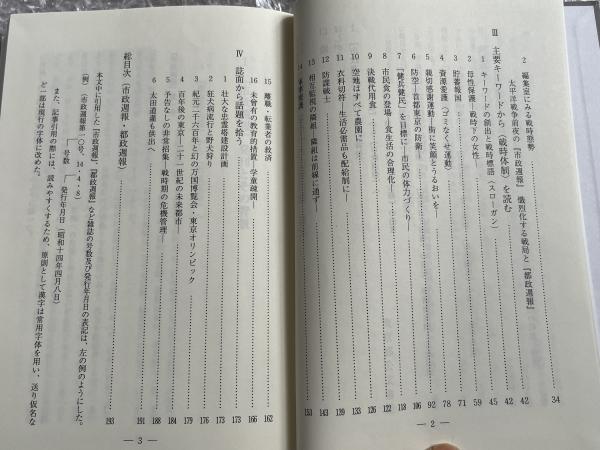 2 編集室にみる戦時態勢 34
太平洋戦争前夜の『市政週報』 熾烈化する戦局と『都政週報』
Ⅲ 主要キーワードから〈戦時体制〉を読む 42
1 キーワードの創出と戦時標語（スローガン） 42
2 母性保護―戦時下の女性 45
3 貯蓄報国 59
4 資源愛護（ゴミをなくせ運動） 71
5 親切感謝運動―街に笑顔とうるおいを― 78
6 防空―首都東京の防衛 92
7 「健兵健民」を目標に―市民の体力づくり― 106
8 市民食の登場―食生活の合理化― 118
9 決戦代用食 122
10 空地はすべて農園に 126
11 衣料切符―生活必需品も配給制に― 133
12 防諜戦士 139
13 相互監視の隣組―隣組は前線に通ず― 143
14 軍事援護 153
― 2 ―
15 離職・転業者の救済 162
16 未曾有の教育的措置―学童疎開― 166
Ⅳ 誌面から話題を拾う 172
1 壮大な忠霊塔建設計画 172
2 狂犬病流行と野犬狩り 176
3 紀元二千六百年と幻の万国博覧会・東京オリンピック 179
4 百年後の東京―二十一世紀の未来都市― 184
5 予告なしの非常招集―戦時期の危機管理― 188
6 太田道灌も供出へ 191
総目次（市政週報・都政週報） 193
本文中に引用した『市政週報』、『都政週報』など雑誌の号数及び発行年月日の表記は、左の例のようにした。
（例）（市政週報第一〇号 14・4・8）
号数 発行年月日（昭和十四年四月八日）
また、記事引用の際には、読みやすくするため、原則として漢字は常用字体を用い、送り仮名な
ど一部は現行の字体に改めた。
― 3 ―